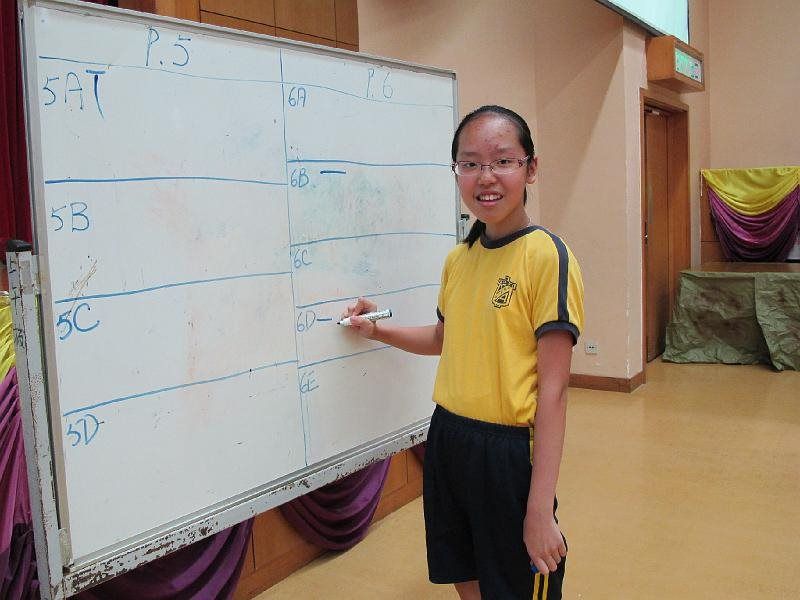 P.5
5A T
5B
5C
5D
P.6
6A
6B —
6C
6D —
6E